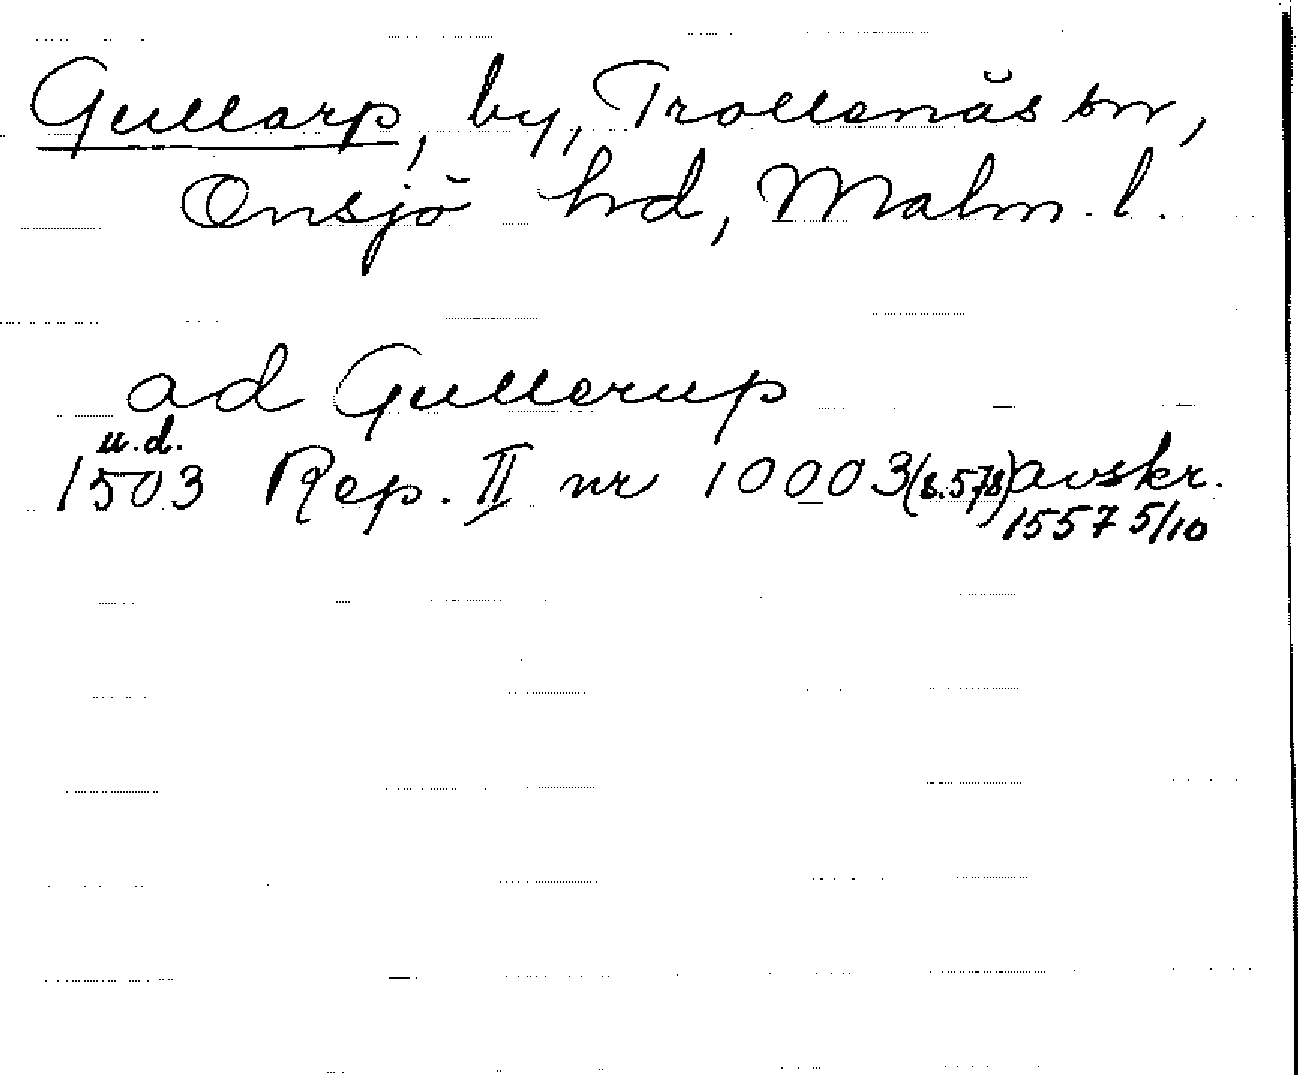 Gullarp, by, Trollenäs sn,
Onsjö hd, Malm. l.
ad Gullerup
u.d.
1503 Rep. II nr 10003 (s.578) avskr.
1557 5/10